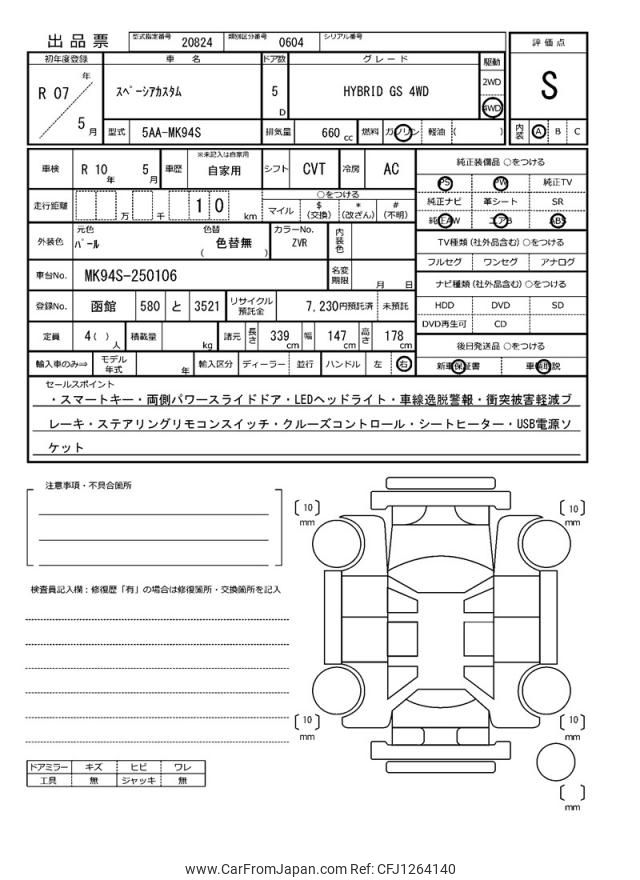 出品票 型式指定番号 20824 類別区分番号 0604 シリアル番号
初年度登録 車名 ドア数 グレード 駆動 評価点
R 07 年 5 月 スペーシアカスタム 5 D HYBRID GS 4WD 2WD 4WD S
型式 5AA-MK94S 排気量 660 cc 燃料 ガソリン 軽油 ( ) 内装 A B C
車検 R 10 年 5 月 車歴 ※未記入は自家用 自家用 シフト CVT 冷房 AC 純正装備品 ○をつける
PS PW 純正TV
走行距離 万 千 1 0 km ○をつける
マイル $ (交換) * (改ざん) # (不明)
純正ナビ 革シート SR
純正AW エアB ABS
外装色 元色 パール 色替 ( 色替無 ) カラーNo. ZVR 内装色
TV種類 (社外品含む) ○をつける
フルセグ ワンセグ アナログ
車台No. MK94S-250106 名変期限 月 日
ナビ種類 (社外品含む) ○をつける
登録No. 函館 580 と 3521 リサイクル預託金 7,230円預託済 未預託
HDD DVD SD
DVD再生可 CD
定員 4( ) 人 積載量 kg 諸元 長さ 339 cm 幅 147 cm 高さ 178 cm
後日発送品 ○をつける
輸入車のみ⇒ モデル年式 年 輸入区分 ディーラー 並行 ハンドル 左 右
新車保証書 車輌取説
セールスポイント
・スマートキー・両側パワースライドドア・LEDヘッドライト・車線逸脱警報・衝突被害軽減ブ
レーキ・ステアリングリモコンスイッチ・クルーズコントロール・シートヒーター・USB電源ソ
ケット
注意事項・不具合箇所
[ 10 ] mm
[ 10 ] mm
検査員記入欄：修復歴「有」の場合は修復箇所・交換箇所を記入
[ 10 ] mm
[ 10 ] mm
ドアミラー キズ ヒビ ワレ
工具 無 ジャッキ 無
[ ] mm
www.CarFromJapan.com Ref: CFJ1264140